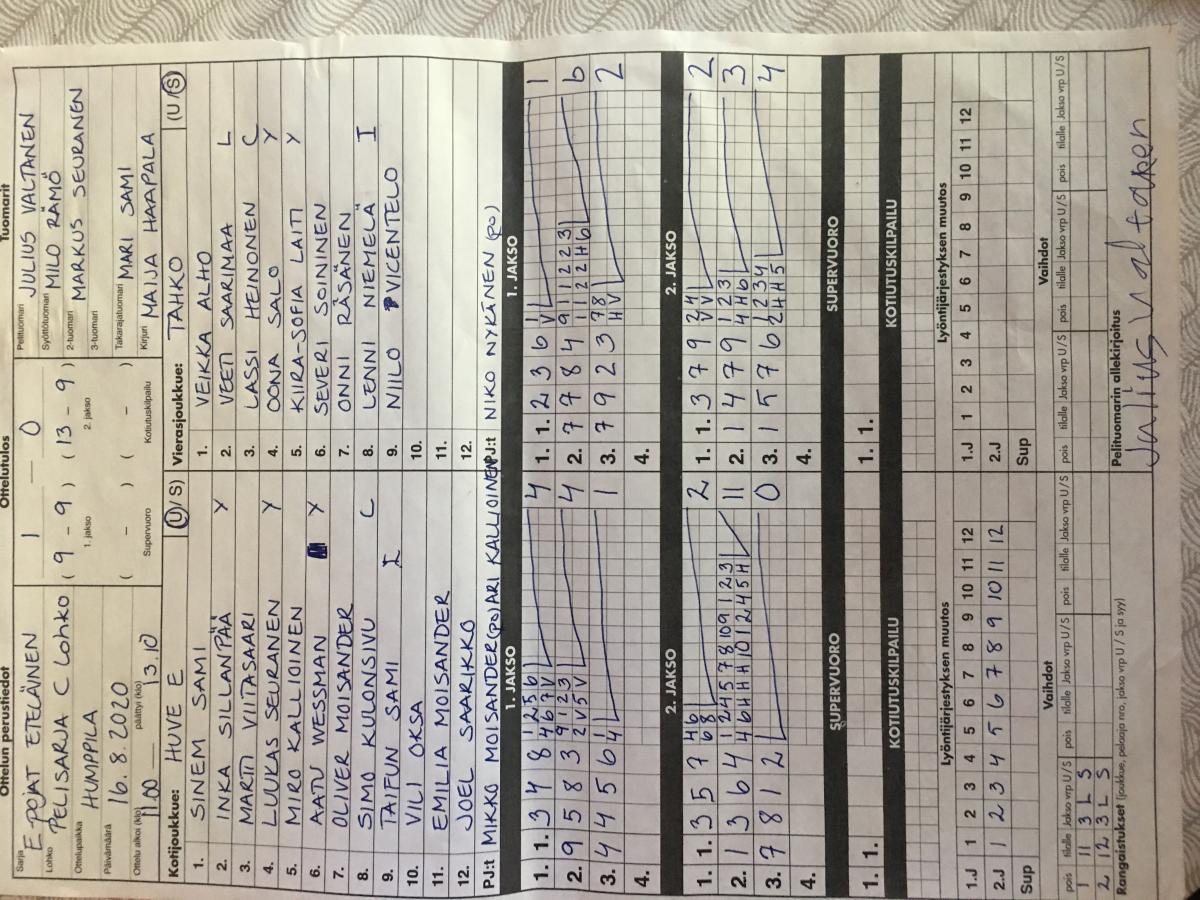 Ottelun perustiedot
Sarja E-POJAT ETELÄINEN
Lohko PELISARJA C Lohko
Ottelupaikka HUMPPILA
Päivämäärä 16.8.2020
Ottelu alkoi (klo) 11.00 päättyi (klo) 13.10
Ottelutulos
1 — 0
( 9 - 9 ) ( 13 - 9 )
1. jakso 2. jakso
( - ) ( - )
Supervuoro Kotiutuskilpailu
Tuomarit
Pelituomari JULIUS VALTANEN
Syöttötuomari MILO RÄMÖ
2-tuomari MARKUS SEURANEN
3-tuomari
Takarajatuomari MARI SAMI
Kirjuri MAIJA HAAPALA
Kotijoukkue: HUVE E (U/S)
1. SINEM SAMI
2. INKA SILLANPÄÄ Y
3. MARTTI VIITASAARI
4. LUUKAS SEURANEN Y
5. MIRO KALLIOINEN
6. AATU WESSMAN Y
7. OLIVER MOISANDER
8. SIMO KULONSIVU L
9. TAIFUN SAMI I
10. VILI OKSA
11. EMILIA MOISANDER
12. JOEL SAARIKKO
PJ:t MIKKO MOISANDER(po) ARI KALLIOINEN
Vierasjoukkue: TAHKO (U/S)
1. VEIKKA ALHO
2. VEETI SAARIMAA L
3. LASSI HEINONEN C
4. OONA SALO Y
5. KIIRA-SOFIA LAITI Y
6. SEVERI SOININEN
7. ONNI RÄSÄNEN
8. LENNI NIEMELÄ I
9. NIILO VICENTELO
10.
11.
12.
PJ:t NIKO NYKÄNEN (po)
1. JAKSO
1. 1. 3 4 8 1 2 5 6 4
4 6 7 V
2. 9 5 8 3 9 1 2 3 4
2 V 5 V
3. 4 4 5 6 1 1
4
4.
1. JAKSO
1. 1. 2 3 6 1 1
V
2. 7 7 8 4 9 1 1 2 2 3 6
1 1 2 2 H 6
3. 7 9 2 3 7 8 2
H V
4.
2. JAKSO
1. 1. 3 5 7 4 6 2
6 8
2. 1 3 6 4 1 2 4 5 7 8 10 9 1 2 3 11
4 6 H H H 10 1 2 4 5 H
3. 7 8 1 2 0
4.
2. JAKSO
1. 1. 3 7 9 2 4 2
V V
2. 1 4 7 9 1 2 3 3
4 H 6
3. 1 5 7 6 1 2 3 4 4
2 4 H 5
4.
SUPERVUORO
1. 1.
SUPERVUORO
1. 1.
KOTIUTUSKILPAILU
KOTIUTUSKILPAILU
Lyöntijärjestyksen muutos
1.J 1 2 3 4 5 6 7 8 9 10 11 12
2.J 1 2 3 4 5 6 7 8 9 10 11 12
Sup
Lyöntijärjestyksen muutos
1.J 1 2 3 4 5 6 7 8 9 10 11 12
2.J
Sup
Vaihdot
pois tilalle Jakso vrp U/S pois tilalle Jakso vrp U/S pois tilalle Jakso vrp U/S
1 11 3 L S
2 12 3 L S
Vaihdot
pois tilalle Jakso vrp U/S pois tilalle Jakso vrp U/S pois tilalle Jakso vrp U/S
Rangaistukset (joukkue, pelaaja nro, jakso vrp U / S ja syy)
Pelituomarin allekirjoitus
Julius Valtanen